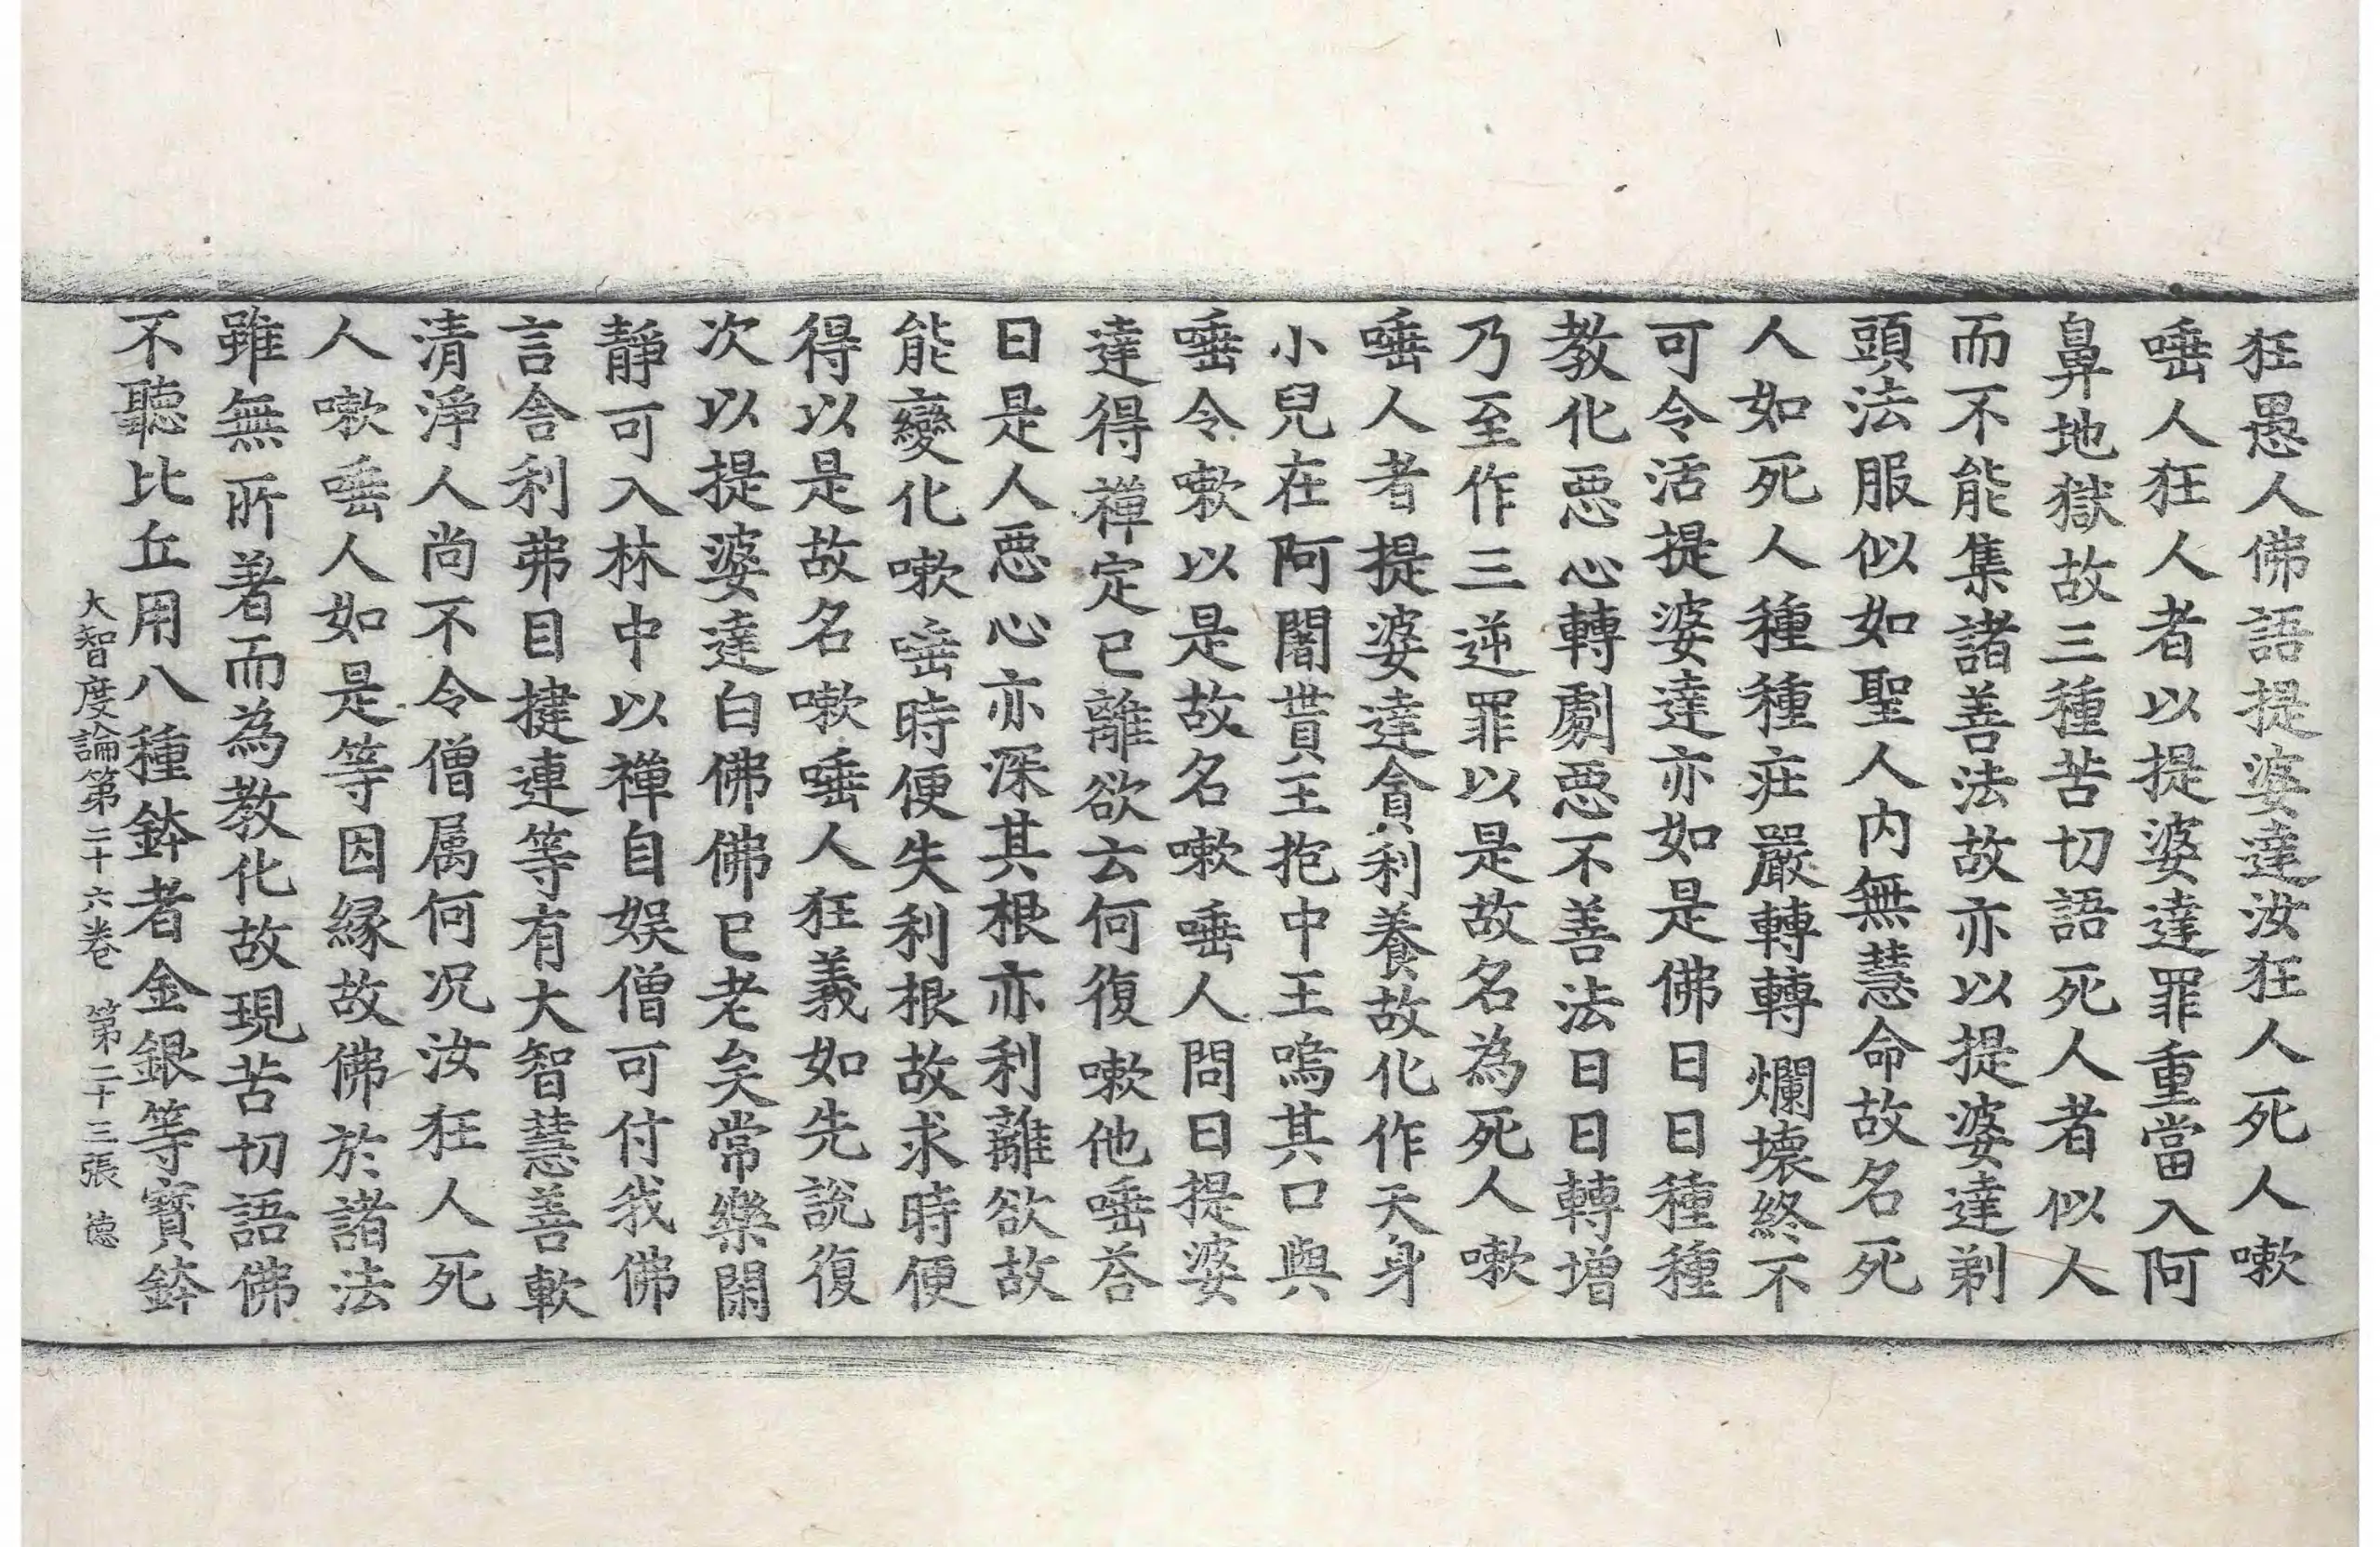 狂愚人佛語提婆達汝狂人死人嗽
唾人狂人者以提婆達罪重當入阿
鼻地獄故三種苦切語死人者似人
而不能集諸善法故亦以提婆達剃
頭法服似如聖人內無慧命故名死
人如死人種種莊嚴轉轉爛壞終不
可令活提婆達亦如是佛日日種種
教化惡心轉劇惡不善法日日轉增
乃至作三逆罪以是故名為死人嗽
唾人者提婆達貪利養故化作天身
小兒在阿闍貰王抱中王嗚其口與
唾令嗽以是故名嗽唾人問曰提婆
達得禪定已離欲云何復嗽他唾荅
曰是人惡心亦深其根亦利離欲故
能變化嗽唾時便失利根故求時便
得以是故名嗽唾人狂義如先說復
次以提婆達白佛佛已老矣常樂閑
靜可入林中以禪自娱僧可付我佛
言舍利弗目揵連等有大智慧善軟
清淨人尚不令僧属何况汝狂人死
人嗽唾人如是等因緣故佛於諸法
雖無所著而為教化故現苦切語佛
不聽比丘用八種鉢者金銀等寶鉢
大智度論第二十六卷 第二十三張 德